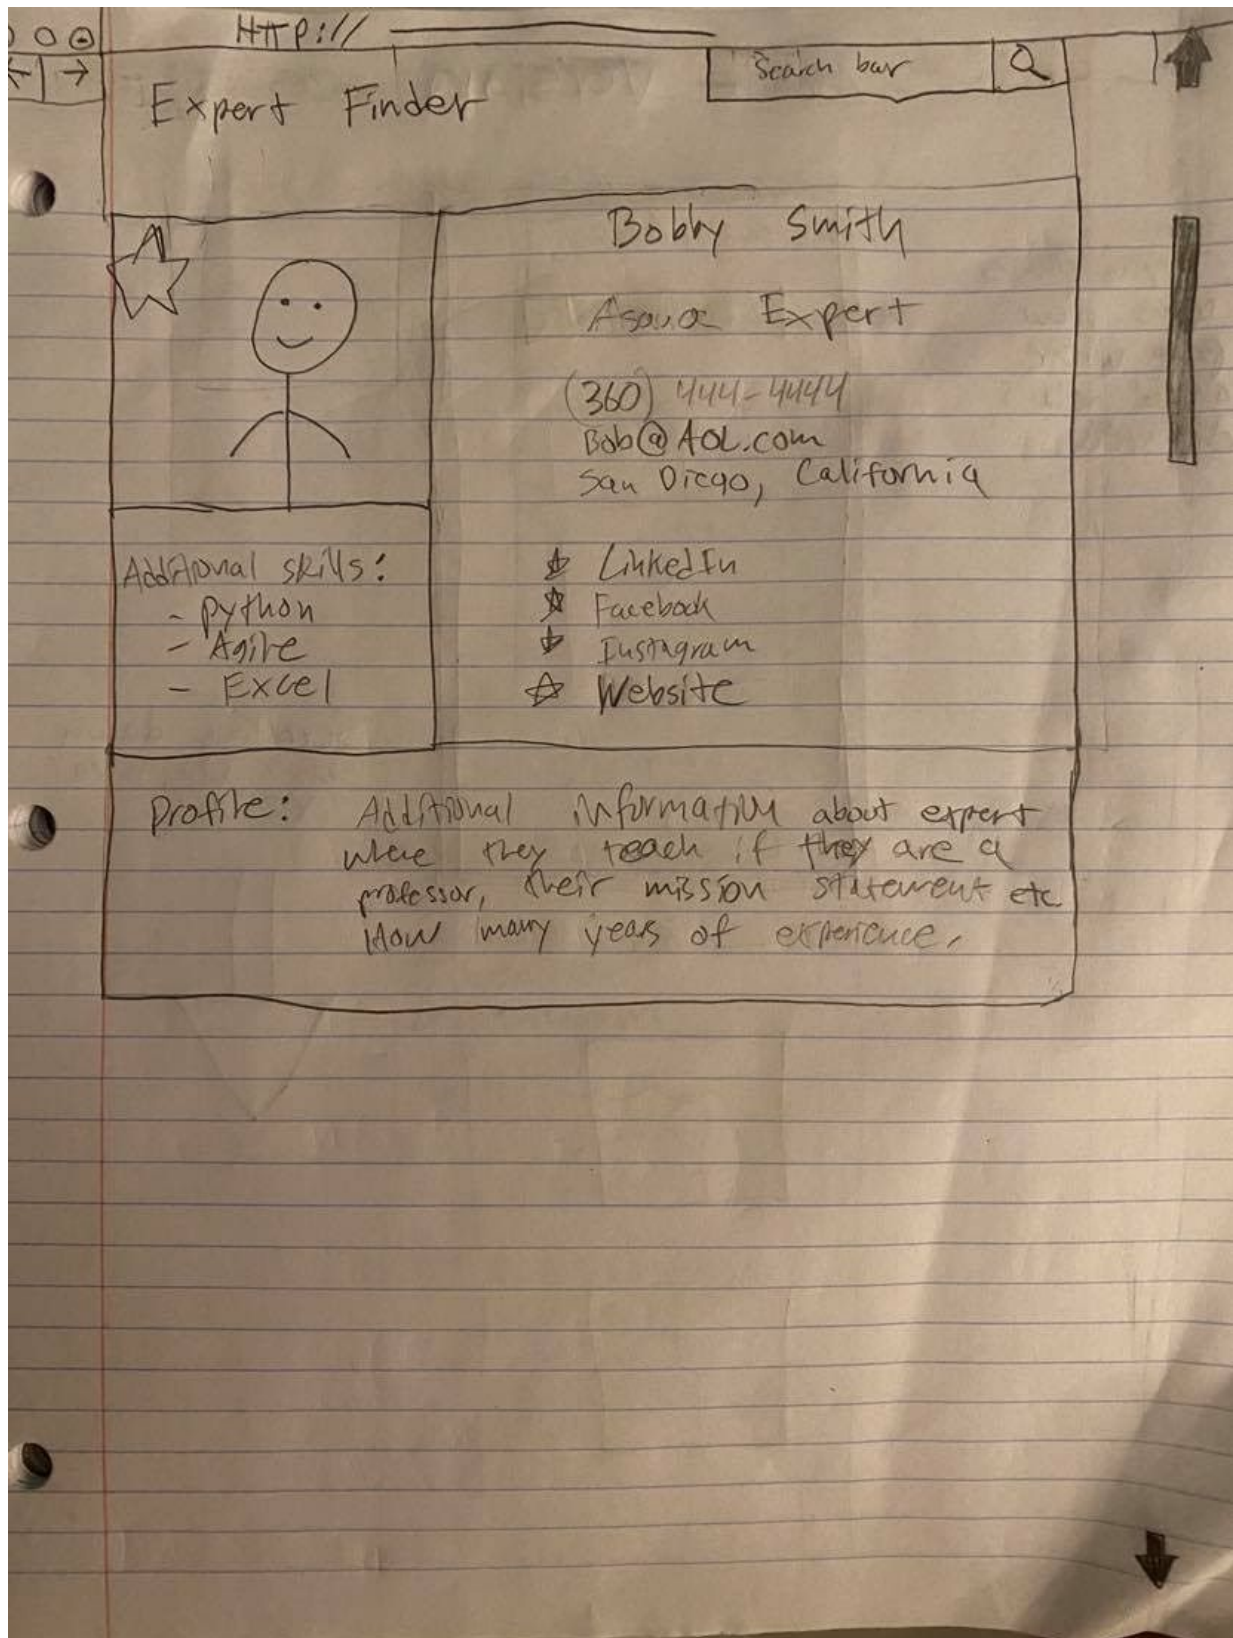 HTTP://
Search bar
Expert Finder
Bobby Smith
Asana Expert
(360) 444-4444
Bob@AOL.com
San Diego, California
Additional skills:
- Python
- Agile
- Excel
LinkedIn
Facebook
Instagram
Website
Profile: Additional information about expert
where they teach if they are a
professor, their mission statement etc
How many years of experience.